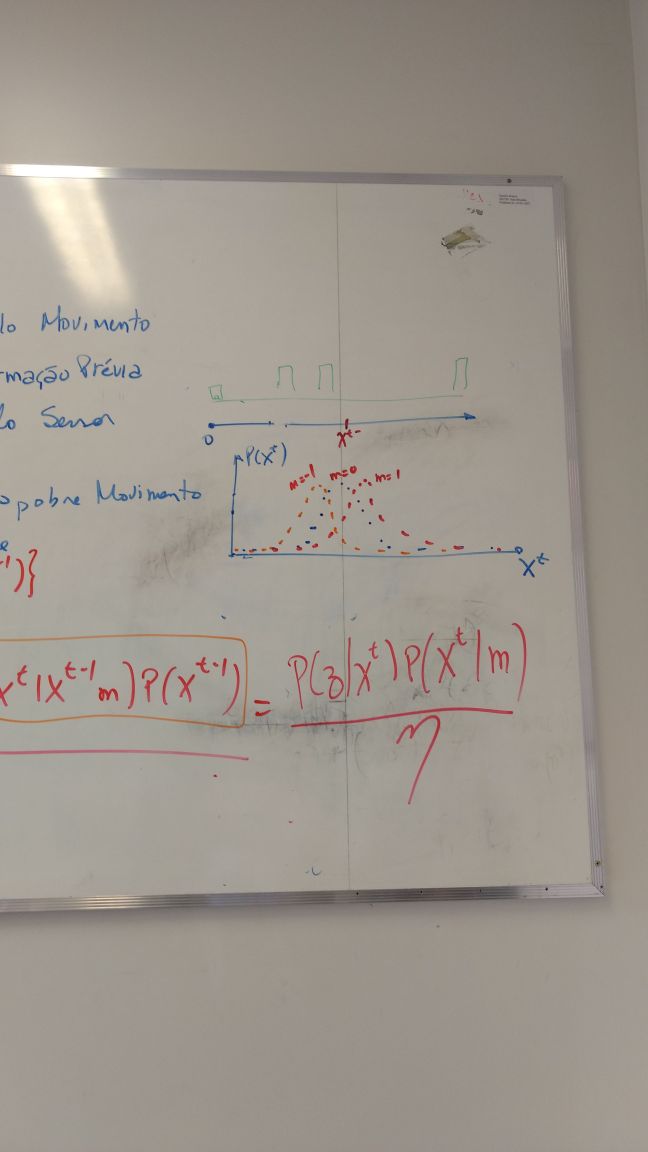 lo Movimento
rmação Prévia
lo Sensor
o pobre Movimento
)}
0
x^t-1
P(x^t)
m=-1 m=0 m=1
x^t
x^t|x^t-1 m)P(x^t-1) = P(z|x^t)P(x^t|m)
η